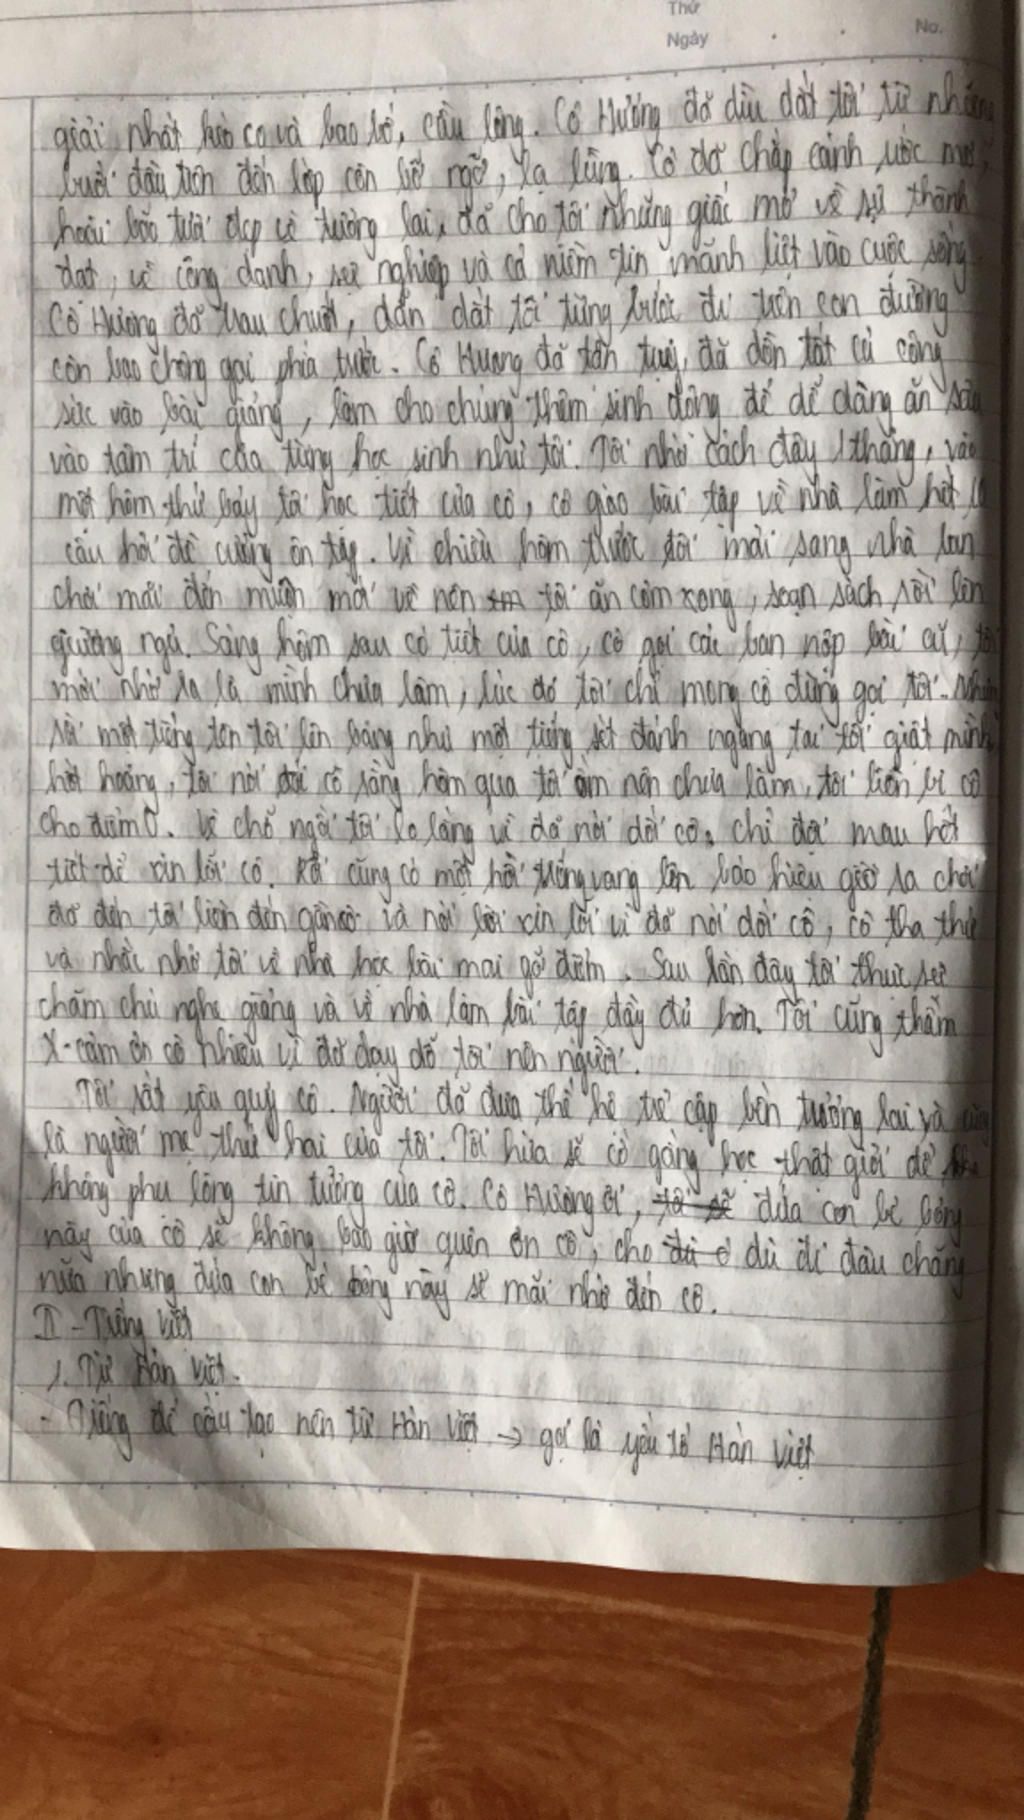 Thứ
Ngày
No.
giải nhất kéo co và bao bố, cầu lông. Cô Hương đã dìu dắt tôi từ những
buổi đầu tiên đến lớp còn bỡ ngỡ, lạ lùng. Cô đã chắp cánh ước mơ,
hoài bão tươi đẹp về tương lai, đã cho tôi những giấc mơ về sự thành
đạt, về công danh, sự nghiệp và cả niềm tin mãnh liệt vào cuộc sống.
Cô Hương đã trau chuốt, dẫn dắt tôi từng bước đi trên con đường
còn bao chông gai phía trước. Cô Hương đã tận tuỵ, đã dồn tất cả công
sức vào bài giảng, làm cho chúng thêm sinh động để dễ dàng ăn sâu
vào tâm trí của từng học sinh như tôi. Tôi nhớ cách đây 1 tháng, vào
một hôm thứ bảy tôi học tiết của cô, cô giao bài tập về nhà làm hết
câu hỏi đề cương ôn tập. Vì chiều hôm trước tôi mải sang nhà bạn
chơi mãi đến muộn mới về nên tôi ăn cơm xong, soạn sách rồi lên
giường ngủ. Sáng hôm sau có tiết của cô, cô gọi các bạn nộp bài cũ, tôi
mới nhớ ra là mình chưa làm, lúc đó tôi chỉ mong cô đừng gọi tôi. Nhưng
rồi một tiếng tên tôi lên bảng như một tiếng sét đánh ngang tai tôi giật mình
hốt hoảng, tôi nói dối cô sáng hôm qua tôi ốm nên chưa làm, tôi liền bị cô
cho điểm 0. Về chỗ ngồi tôi lo lắng vì đã nói dối cô. chỉ đợi mau hết
tiết để xin lỗi cô. Rồi cũng có một hồi trống vang lên báo hiệu giờ ra chơi
đã đến tôi liền đến gần cô và nói lời xin lỗi vì đã nói dối cô, cô tha thứ
và nhắc nhở tôi về nhà học bài mai gỡ điểm. Sau lần đấy tôi thực sự
chăm chú nghe giảng và về nhà làm bài tập đầy đủ hơn. Tôi cũng thầm
cảm ơn cô nhiều vì đã dạy dỗ tôi nên người.
Tôi rất yêu quý cô. Người đã đưa thế hệ trẻ cập bến tương lai và cũng
là người mẹ thứ hai của tôi. Tôi hứa sẽ cố gắng học thật giỏi để
không phụ lòng tin tưởng của cô. Cô Hương ơi, đứa con bé bỏng
này của cô sẽ không bao giờ quên ơn cô, cho dù đi đâu chăng
nữa nhưng đứa con bé bỏng này sẽ mãi nhớ đến cô.
II - Tiếng Việt
1. Từ Hán Việt.
- Tiếng để cấu tạo nên từ Hán Việt → gọi là yếu tố Hán Việt